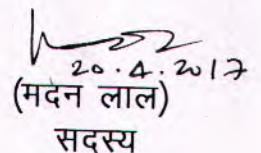 20.4.2017
(मदन लाल)
सदस्य